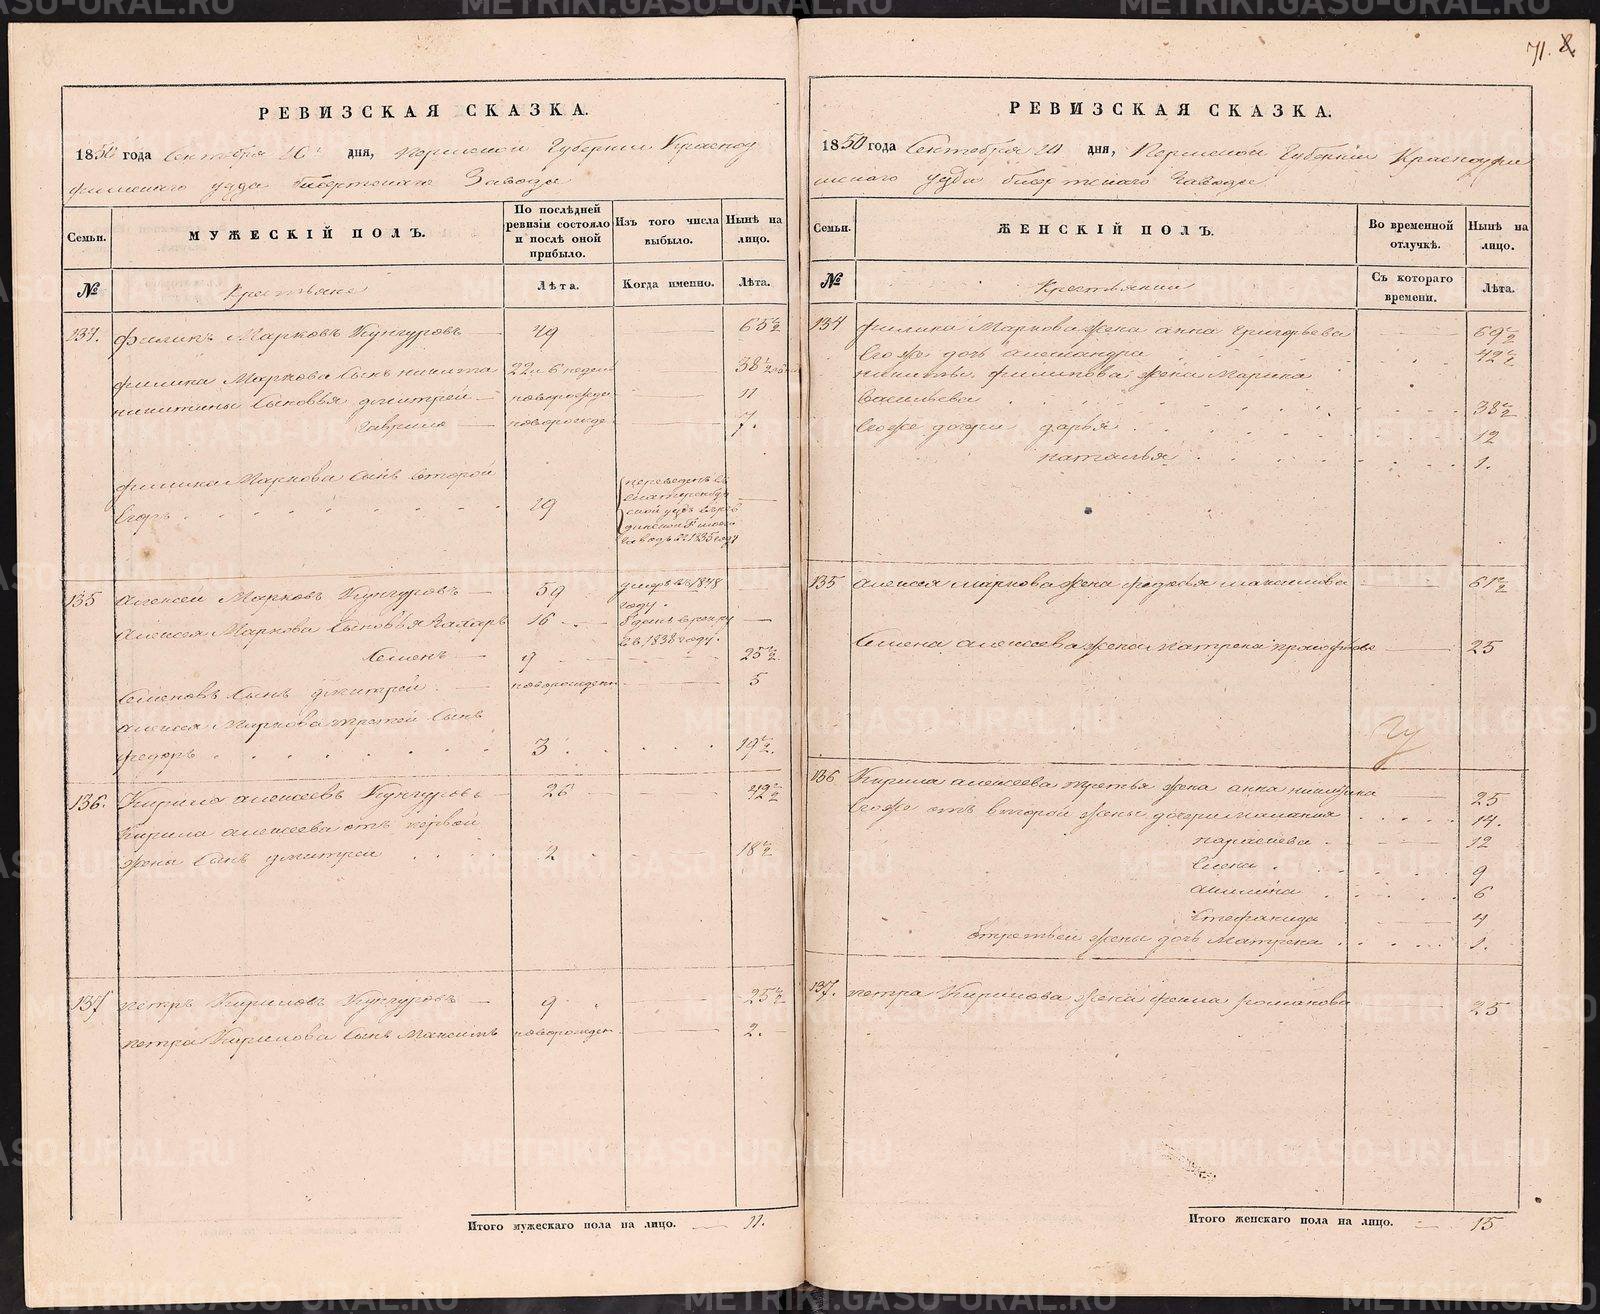 71. 8.
РЕВИЗСКАЯ СКАЗКА.
1850 года Сентября 20 дня, Пермской Губернии Красноу
фимского уезда Бисертского Завода
Семьи.
МУЖЕСКІЙ ПОЛЪ.
По послѣдней ревизіи состояло и послѣ оной прибыло.
Изъ того числа выбыло.
Нынѣ на лицо.
№
Крестьяне
Лѣта.
Когда именно.
Лѣта.
134. Филипъ Марковъ Кунгуровъ 49 65 1/2
Филипа Маркова Сынъ Никита 22 и 6 недель 38 1/2
Никитины Сыновья Дмитрей новорожден 11
Гаврило новорожде 7.
Филипа Маркова Сынъ второй
Егоръ 19 переведенъ въ
въ 1835 году
135 Алексей Марковъ Кунгуровъ 59 умеръ въ 1848
году.
Алексея Маркова Сыновья Захаръ 16 въ рекру
въ 1838 году.
Семенъ 9 25 1/2
Семеновъ Сынъ Дмитрей новорожден 5
Алексея Маркова третей Сынъ
Федоръ 3 19 1/2.
136. Кирило Алексеевъ Кунгуровъ 26 42 1/2
Кирила Алексеева отъ первой
жены Сынъ Дмитрей 2 18 1/2
137 Петръ Кириловъ Кунгуровъ 9 25 1/2
Петра Кирилова Сынъ Максимъ новорожден 2.
Итого мужескаго пола на лицо. 11.
РЕВИЗСКАЯ СКАЗКА.
1850 года Сентября 20 дня, Пермской Губерніи Красноуфи
мского уезда Бисертского Завода
Семьи.
ЖЕНСКІЙ ПОЛЪ.
Во временной отлучкѣ.
Нынѣ на лицо.
№
Крестьянки
Съ котораго времени.
Лѣта.
134 Филипа Маркова жена Анна Григорьева 69 1/2
Егоже дочь Александра 42 1/2
Никиты Филипова жена Марина
Васильева 38 1/2
Егоже дочери Дарья 12
Наталья 1.
135 Алексея Маркова жена Федосья 61 1/2
Семена Алексеева жена Матрена 25
136 Кирила Алексеева третья жена Анна 25
Егоже отъ второй жены дочери Маланья 14.
Парасковья 12
Елена 9
Акилина 6
Стефанида 4
Отретьей жены дочь Матрена 1.
137. Петра Кирилова жена Фекла Романова 25
Итого женскаго пола на лицо. 15
METRIKI.GASO-URAL.RU